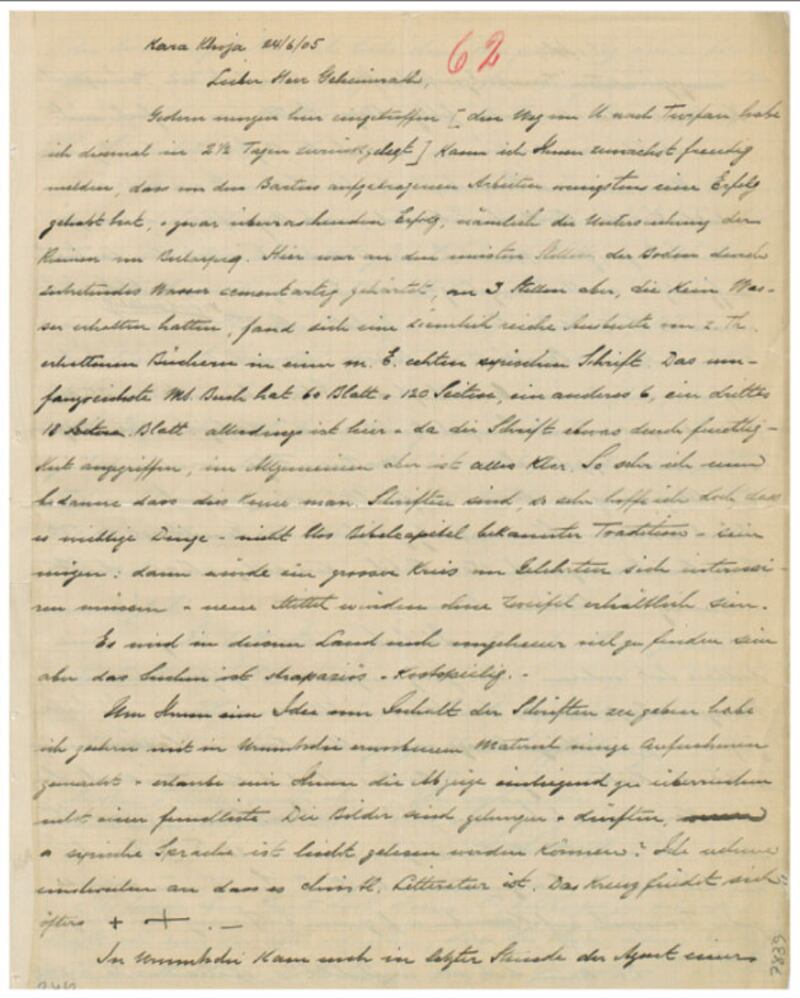 Kara Khoja 24/6/05
62
Lieber Herr Geheimrath,
Gestern morgen hier eingetroffen [den Weg von U. nach Turfan habe
ich diesmal in 2½ Tagen zurückgelegt] kann ich Ihnen zunächst freudig
melden, dass von den Bartus aufgetragenen Arbeiten wenigstens eine Erfolg
gehabt hat, u. zwar überraschenden Erfolg, nämlich die Untersuchung der
Ruinen von Bulayiq. Hier war an den meisten Stellen der Boden durch
zutretendes Wasser cementartig gehärtet, an 3 Stellen aber, die kein Was-
ser erhalten hatten, fand sich eine ziemlich reiche Ausbeute von z. Th.
erhaltenen Büchern in einer m. E. echten syrischen Schrift. Das um-
fangreichste Buch hat 60 Blatt = 120 Seiten, ein anderes 6, ein drittes
18 Blatt allerdings ist hier u. da die Schrift etwas durch Feuchtig-
keit angegriffen, im Allgemeinen aber ist alles klar. So sehr ich nun
bedaure dass dies keine man. Schriften sind, so sehr hoffe ich doch dass
es wichtige Dinge - nicht blos Bibelcapitel bekannter Tradition - sein
mögen: dann würde ein grosser Kreis von Gelehrten sich interessi-
ren müssen u. neue Mittel würden ohne Zweifel erhältlich sein.
Es wird in diesem Land noch ungeheuer viel zu finden sein
aber das Suchen ist strapaziös u. kostspielig. -
Um Ihnen eine Idee vom Inhalt der Schriften zu geben habe
ich gestern mit in Urumtschi erworbenem Material einige Aufnahmen
gemacht u. erlaube mir Ihnen die Abzüge einliegend zu überreichen
nebst einer Fundliste. Die Bilder sind gelungen u. dürften,
syrische Sprache ist leicht gelesen werden können? Ich nehme
einstweilen an dass es christl. Litteratur ist. Das Kreuz findet sich
öfters + + . -
In Urumtschi kam noch in letzter Stunde der Agent eines
7839